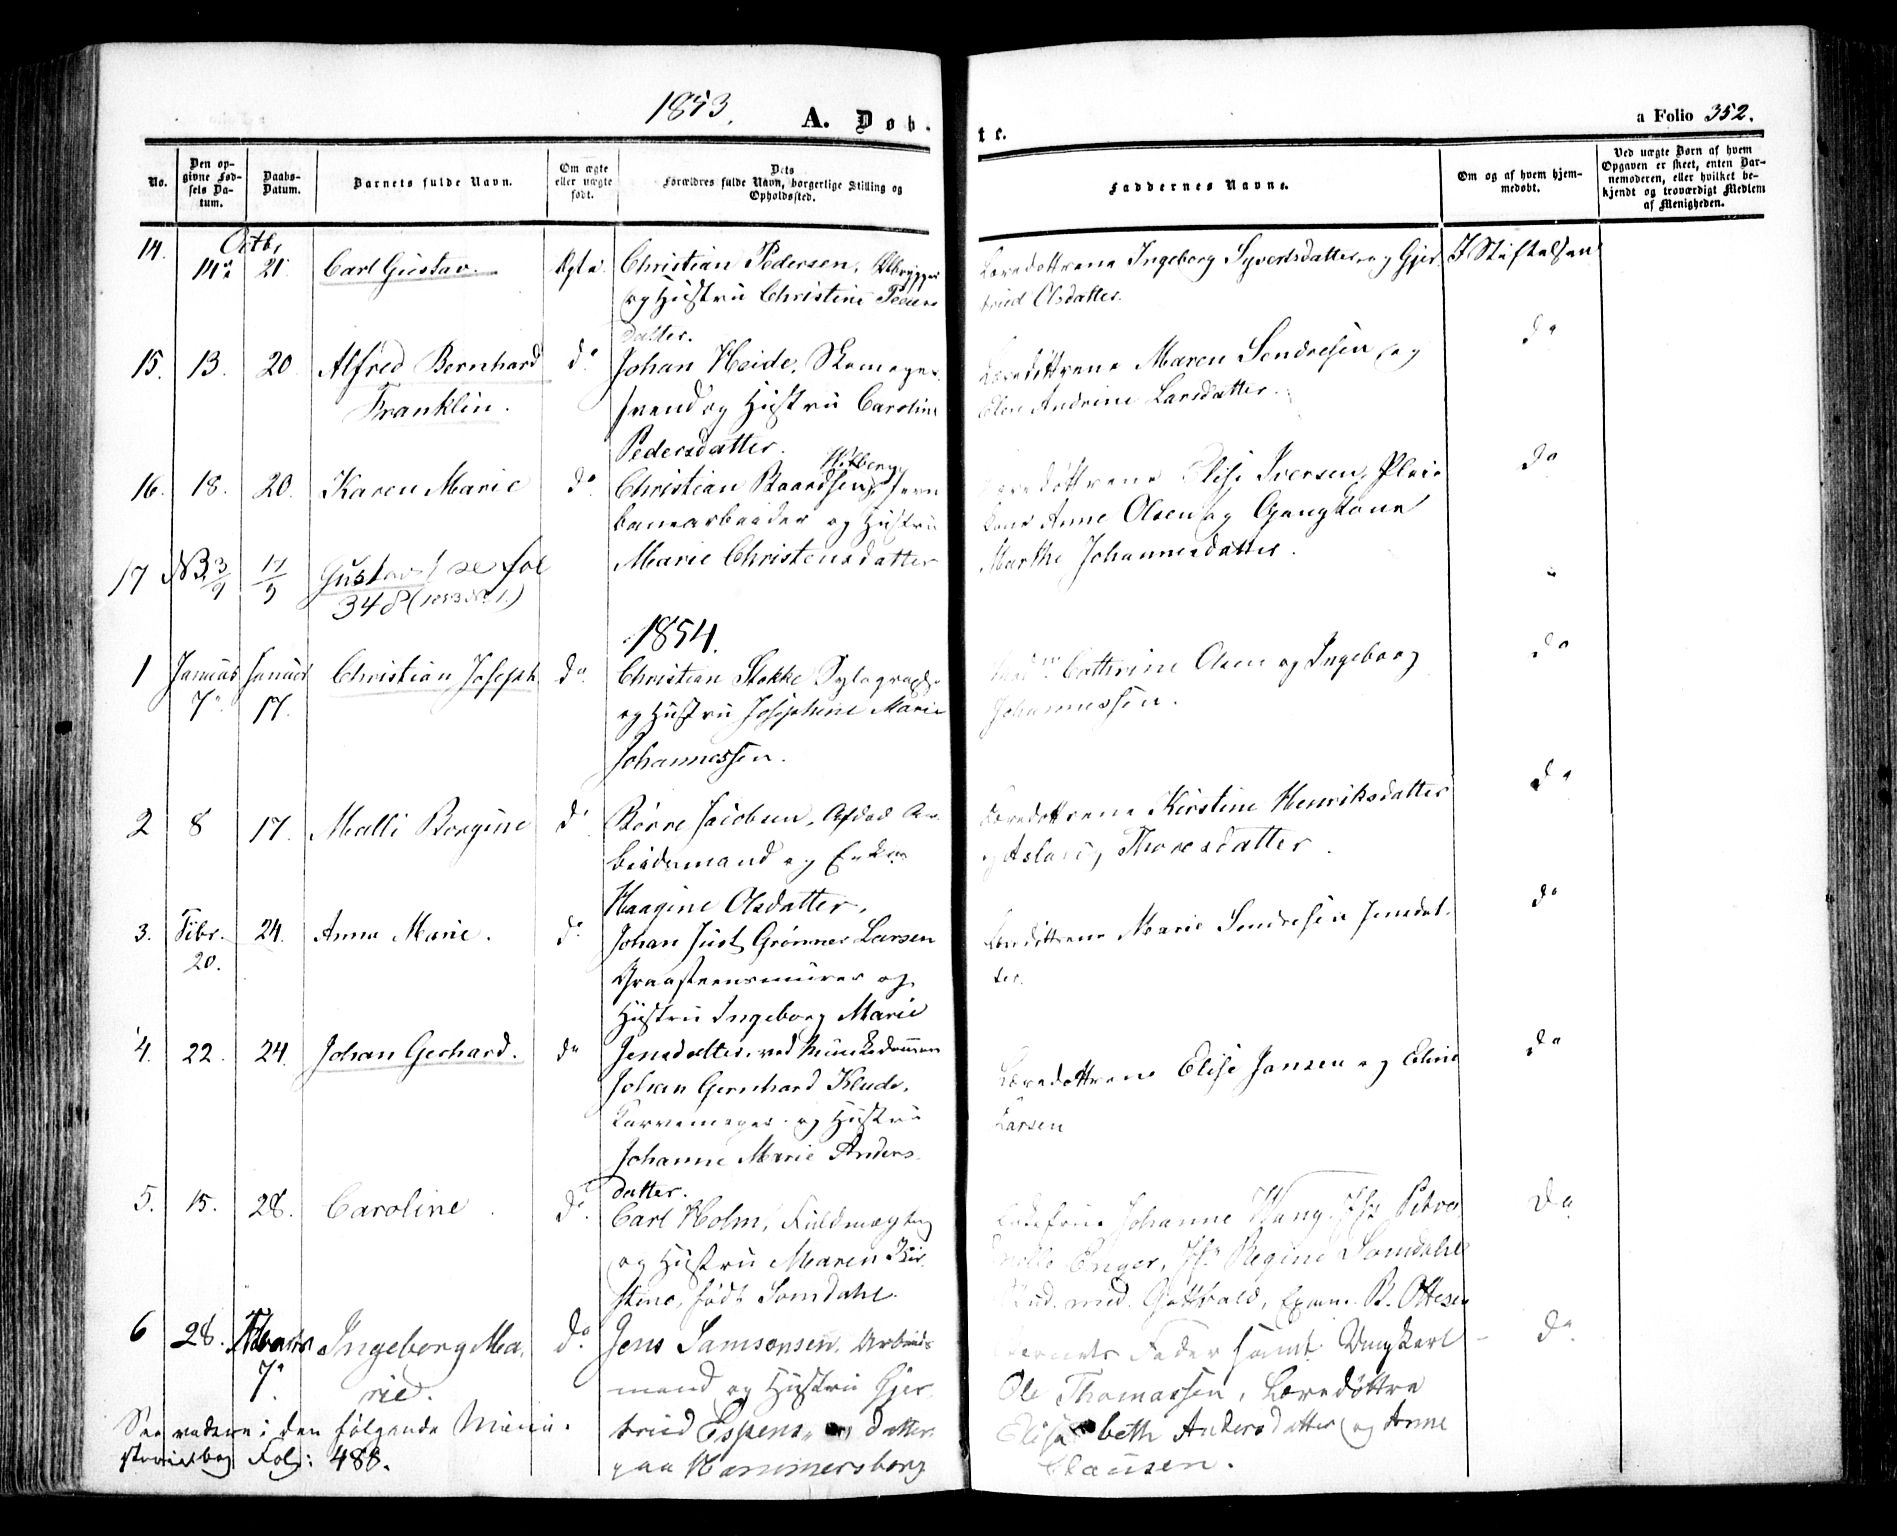 1853.
A. Døb-
te.
a Folio 352.
No.
Den op-
givne Fød-
sels Da-
tum.
Daabs-
Datum.
Barnets fulde Navn.
Om ægte
eller uægte
født.
Dets
Forældres fulde Navn, borgerlige Stilling og
Opholdssted.
Faddernes Navne.
Om og af hvem hjem-
medøbt.
Ved uægte Børn af hvem
Opgaven er skeet, enten Bar-
nemoderen, eller hvilket be-
kjendt og troværdigt Medlem
af Menigheden.
14. Octbr
21 Carl Gustav. Ægte. Christian Pedersen,
og Hustru Christine Peders
datter.
Læredøttrene Ingeborg Syvertsdatter og Gjer
trud Olsdatter.
I Stiftelsen
15. 13. 20. Alfred Bernhard do Johan Heide, Skomager
Franklin. svend og Hustru Caroline
Pedersdatter.
Læredøttrene Maren Sendresen og
Elen Andrine Larsdatter.
do
16. 18. 20. Karen Marie do Christian Baardsen, Jern
banearbeider og Hustru
Marie Christensdatter
Læredøttrene Elise Iversen, Pleie
kone Anne Olsen og Gangkone
Marthe Johannesdatter.
do
17 NB 3/9 11/9 Gustav! se fol
348 (1853 No. 1.)
1854.
1 Januar Januar Christian Joseph do Christian Stokke
7de 17. og Hustru Josephine Marie
Johannessen.
Cathrine Olsen og Ingeborg
Johannessen.
do
2 8 17. Malli Borgine do Børre Jacobsen, Afdød Ar-
beidsmand og Enke
Haagine Olsdatter.
Læredøttrene Kirstine Henriksdatter
og Aslaug Thoresdatter.
do
3. Febr. 24. Anna Marie. do Johan Just Grønner Larsen
20. Graasteensmurer og
Hustru Ingeborg Marie
Jensdatter, ved Munkedammen
Læredøttrene Marie Sendresen Jensdat-
ter.
do
4. 22. 24. Johan Gerhard. do
Johan Gernhard Klude,
Kurvemager og Hustru
Johanne Marie Anders
datter.
Læredøttrene Elise Jansen og Eline
Larsen
do
5. 15. 28. Caroline do Carl Holm, Fuldmægtig
og Hustru Maren Kir
stine, født Somdahl.
Johanne Wang, Jfr Petro
nelle Enger, Jfr Regine Somdahl
Stud. med. Gottwald, Exam. B. Ottesen
do
6 28. Marts Ingeborg Ma- do Jens Samsonsen, Arbeids
7de rie. mand og Hustru Gjer
trud Espens datter
paa Hammersborg
Barnets Fader samt Ungkarl
Ole Thomassen, Læredøttre
Elisabeth Andersdatter og Anne
Clausen.
do
See videre i den følgende Mini-
sterialbog Fol: 488.